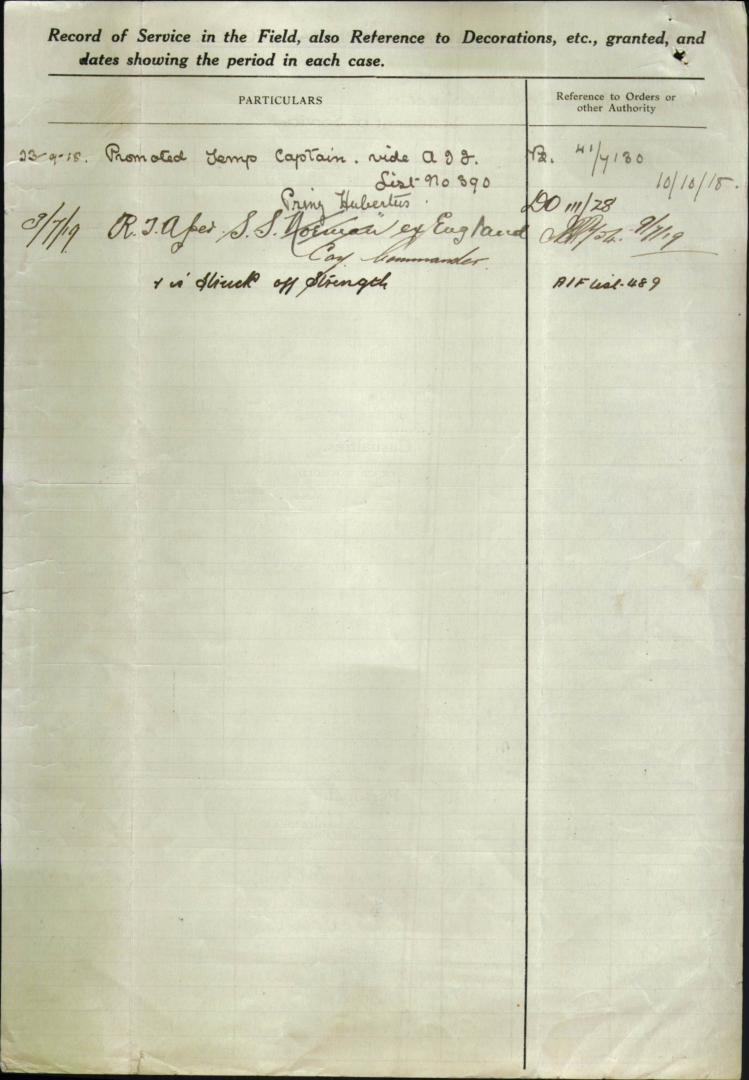 Record of Service in the Field, also Reference to Decorations, etc., granted, and
dates showing the period in each case.
PARTICULARS
Reference to Orders or
other Authority
23-9-18. Promoted Temp Captain. vide A I F. 41/7130
List No 390 10/10/18.
Prinz Hubertus DO 111/28
3/7/19 R.T.A per S.S. ex England 9/7/19
Coy Commander.
& is Struck off Strength AIF List 489